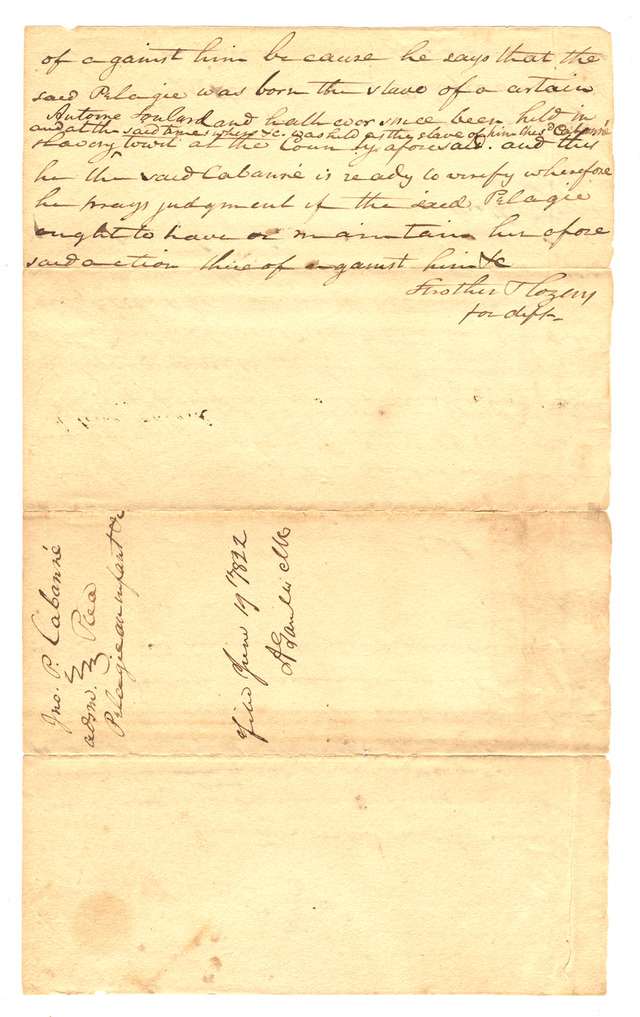 of against him because he says that the
said Pelagie was born the slave of a certain
Antoine Soulard and hath ever since been held in
and at the said times when &c. was held as the slave of him the sd Cabanné
slavery towit at the County aforesaid. and this
he the said Cabanné is ready to verify wherefore
he prays judgment if the said Pelagie
ought to have or maintain her afore
said action thereof against him &c
Strother & Lozery
for deft
Jno. P. Cabanné
adsm. Plea
Pelagie an infant &c
Filed June 19th 1822
Clk